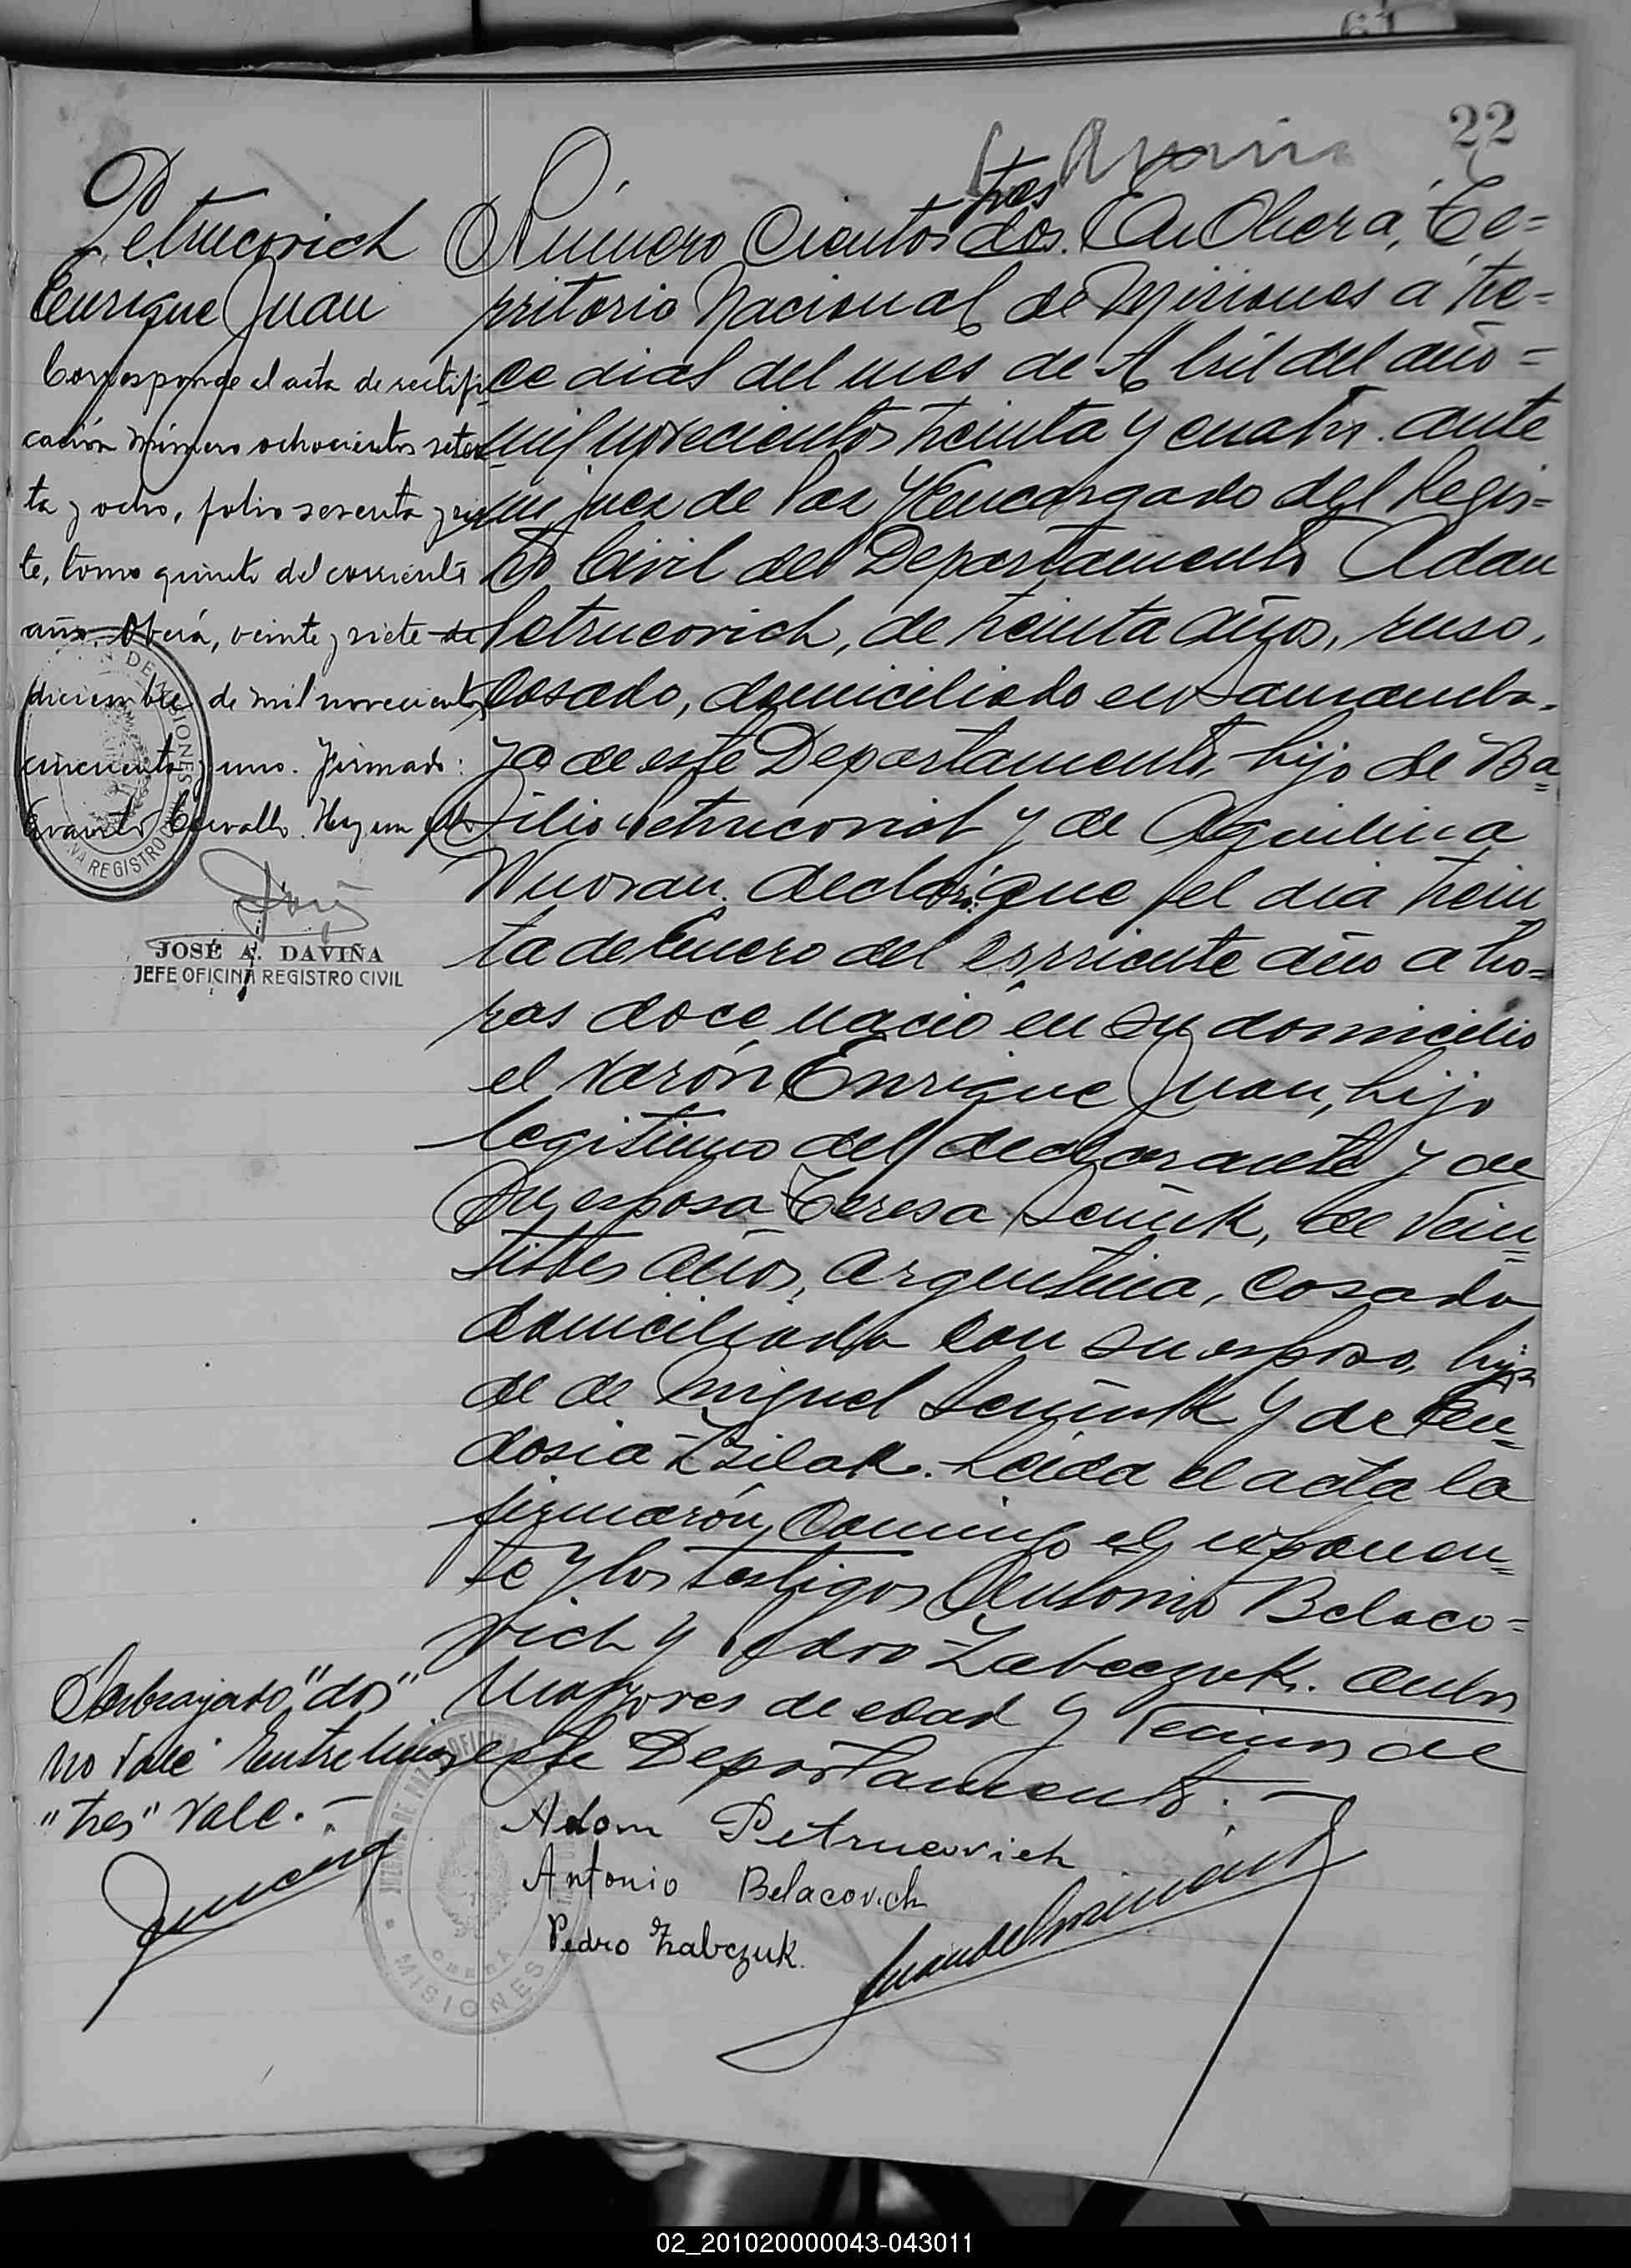 22
Petrucovich
Enrique Juan
Corresponde el acta de rectifi-
cación número ochocientos seten-
ta y ocho, folio sesenta y sie-
te, tomo quinto del corriente
año. Oberá, veinte y siete de
diciembre de mil novecientos
cincuenta y uno. Firmado:
Evaristo Hay un sello
JOSÉ A. DAVIÑA
JEFE OFICINA REGISTRO CIVIL
tres
Número Ciento dos. En Oberá, Te=
rritorio Nacional de Misiones a tre=
ce dias del mes de Abril del año=
mil novecientos treinta y cuatro. ante
mi juez de Paz y Encargado del Regis=
tro Civil del Departamento Adan
Petrucovich, de treinta años, ruso,
casado, domiciliado en Samamba-
ya de este Departamento, hijo de Ba=
silio Petrucovich y de Aquilina
declaró: que el dia trein
ta de Enero del corriente año a ho=
ras doce, nació en su domicilio
el varón Enrique Juan, hijo
legitimo del declarante y de
su esposa Teresa de vein=
titres años, argentina, casada
domiciliada con su esposo, hija
de de Miguel y de Eu=
dosia Leida el acta la
firmarón conmigo el exponen=
te y los testigos Antonio Belaco=
vich y Pedro Zabczuk. ambos
mayores de edad y vecinos de
este Departamento. —
Sobrerayado "dos"
no vale Entre lineas
"tres" vale. —
Adam Petrucovich
Antonio Belacovich
Pedro Zabczuk.
MISIONES
02_201020000043-043011